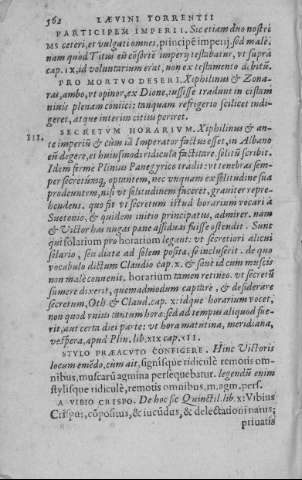 562 LÆVINI TORRENTII
PARTICIPEM IMPERII. Sic etiam duo nostri
MS ceteri, et vulgati omnes, principẽ imperij, sed malè.
nam quod Titus eũ cõsortẽ imperij testabatur, vt suprà
cap. IX, id voluntarium erat, non ex testamento debitũ.
PRO MORTVO DESERI. Xiphilinus & Zona-
ras, ambo, vt opinor, ex Dione, iussisse tradunt in cistam
niuis plenam coniici: tanquam refrigerio scilicet indi-
geret, atque interim citius periret.
III. SECRETVM HORARIVM. Xiphilinus & an-
te imperiũ & cùm iã Imperator factus esset, in Albano
eũ degere, et huiusmodi ridicula factitare solitũ scribit.
Idem ferme Plinius Panegyrico tradit: vt tenebras sem-
per secretũmq; optantem, nec vnquam ex solitudine sua
prodeuntem, nisi vt solitudinem faceret, grauiter repre-
hendens. quo fit vt secretum istud horarum vocari à
Suetonio, & quidem initio principatus, admirer. nam
& Victor has nugas pane assiduas fuisse ostendit. Sunt
qui solarium pro horarium legant: vt secretiori alicui
solario, seu diæta ad solem posita, se incluserit. de quo
vocabulo dictum Claudio cap. x. & sanè id cum muscis
non malè conuenit. horarium tamen retineo. vt secretũ
sumere dixerit, quemadmodum captare, & desiderare
secretum, Oth. & Claud. cap. x: idque horarium vocet,
non quod vnius tantum hora: sed ad tempus aliquod fue-
rit, aut certa diei parte: vt hora matutina, meridiana,
vespera, apud Plin. lib. XIX cap. XII.
STYLO PRÆACVTO CONFIGERE. Hinc Victoris
locum emẽdo, cùm ait, signisque ridiculè remotis om-
nibus, muscarũ agmina persequebatur. legendũ enim
stylisque ridiculè, remotis omnibus, m. agm. pers.
A VIBIO CRISPO. De hoc sic Quinctil. lib. x: Vibius
Crispus, cõpositus, & iucũdus, & delectationi natus;
priuatis